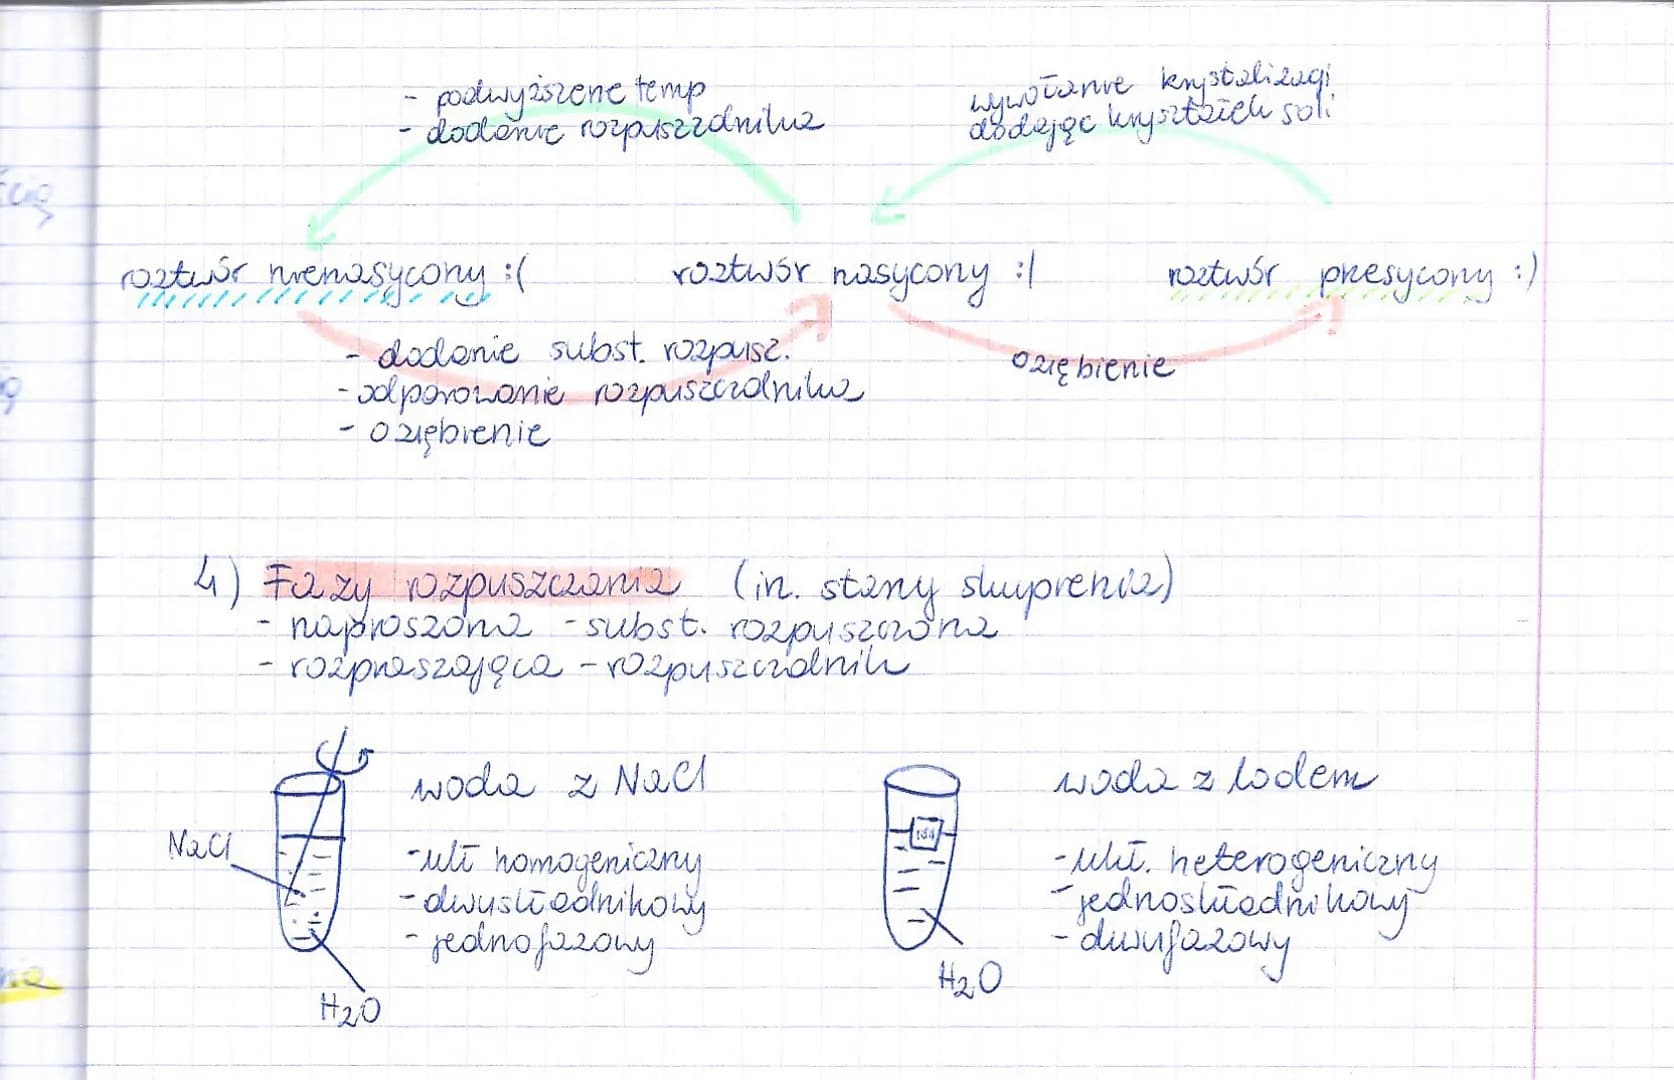 - podwyższene temp
- dodanie rozpuszczdnika
wywołanie krystalizacji
dodając kryształek soli
roztwór nienasycony :(
roztwór nasycony :|
roztwór przesycony :)
- dodanie subst. rozpusz.
- odparowanie rozpuszczalnika
- oziębienie
oziębienie
4) Fazy rozpuszczania (in. stany skupienia)
- naproszona - subst. rozpuszczona
- rozpraszająca - rozpuszczalnik
woda z NaCl
NaCl
- ukł homogeniczny
- dwuskładnikowy
- jednofazowy
H2O
woda z lodem
lód
- ukł. heterogeniczny
- jednoskładnikowy
- dwufazowy
H2O